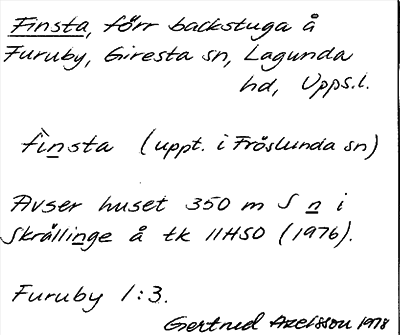 Finsta, förr backstuga å
Furuby, Giresta sn, Lagunda
hd, Upps.l.
fìnsta (uppt. i Fröslunda sn)
Avser huset 350 m S n i
Skrållinge å tk 11H50 (1976).
Furuby 1:3.
Gertrud Axelsson 1978